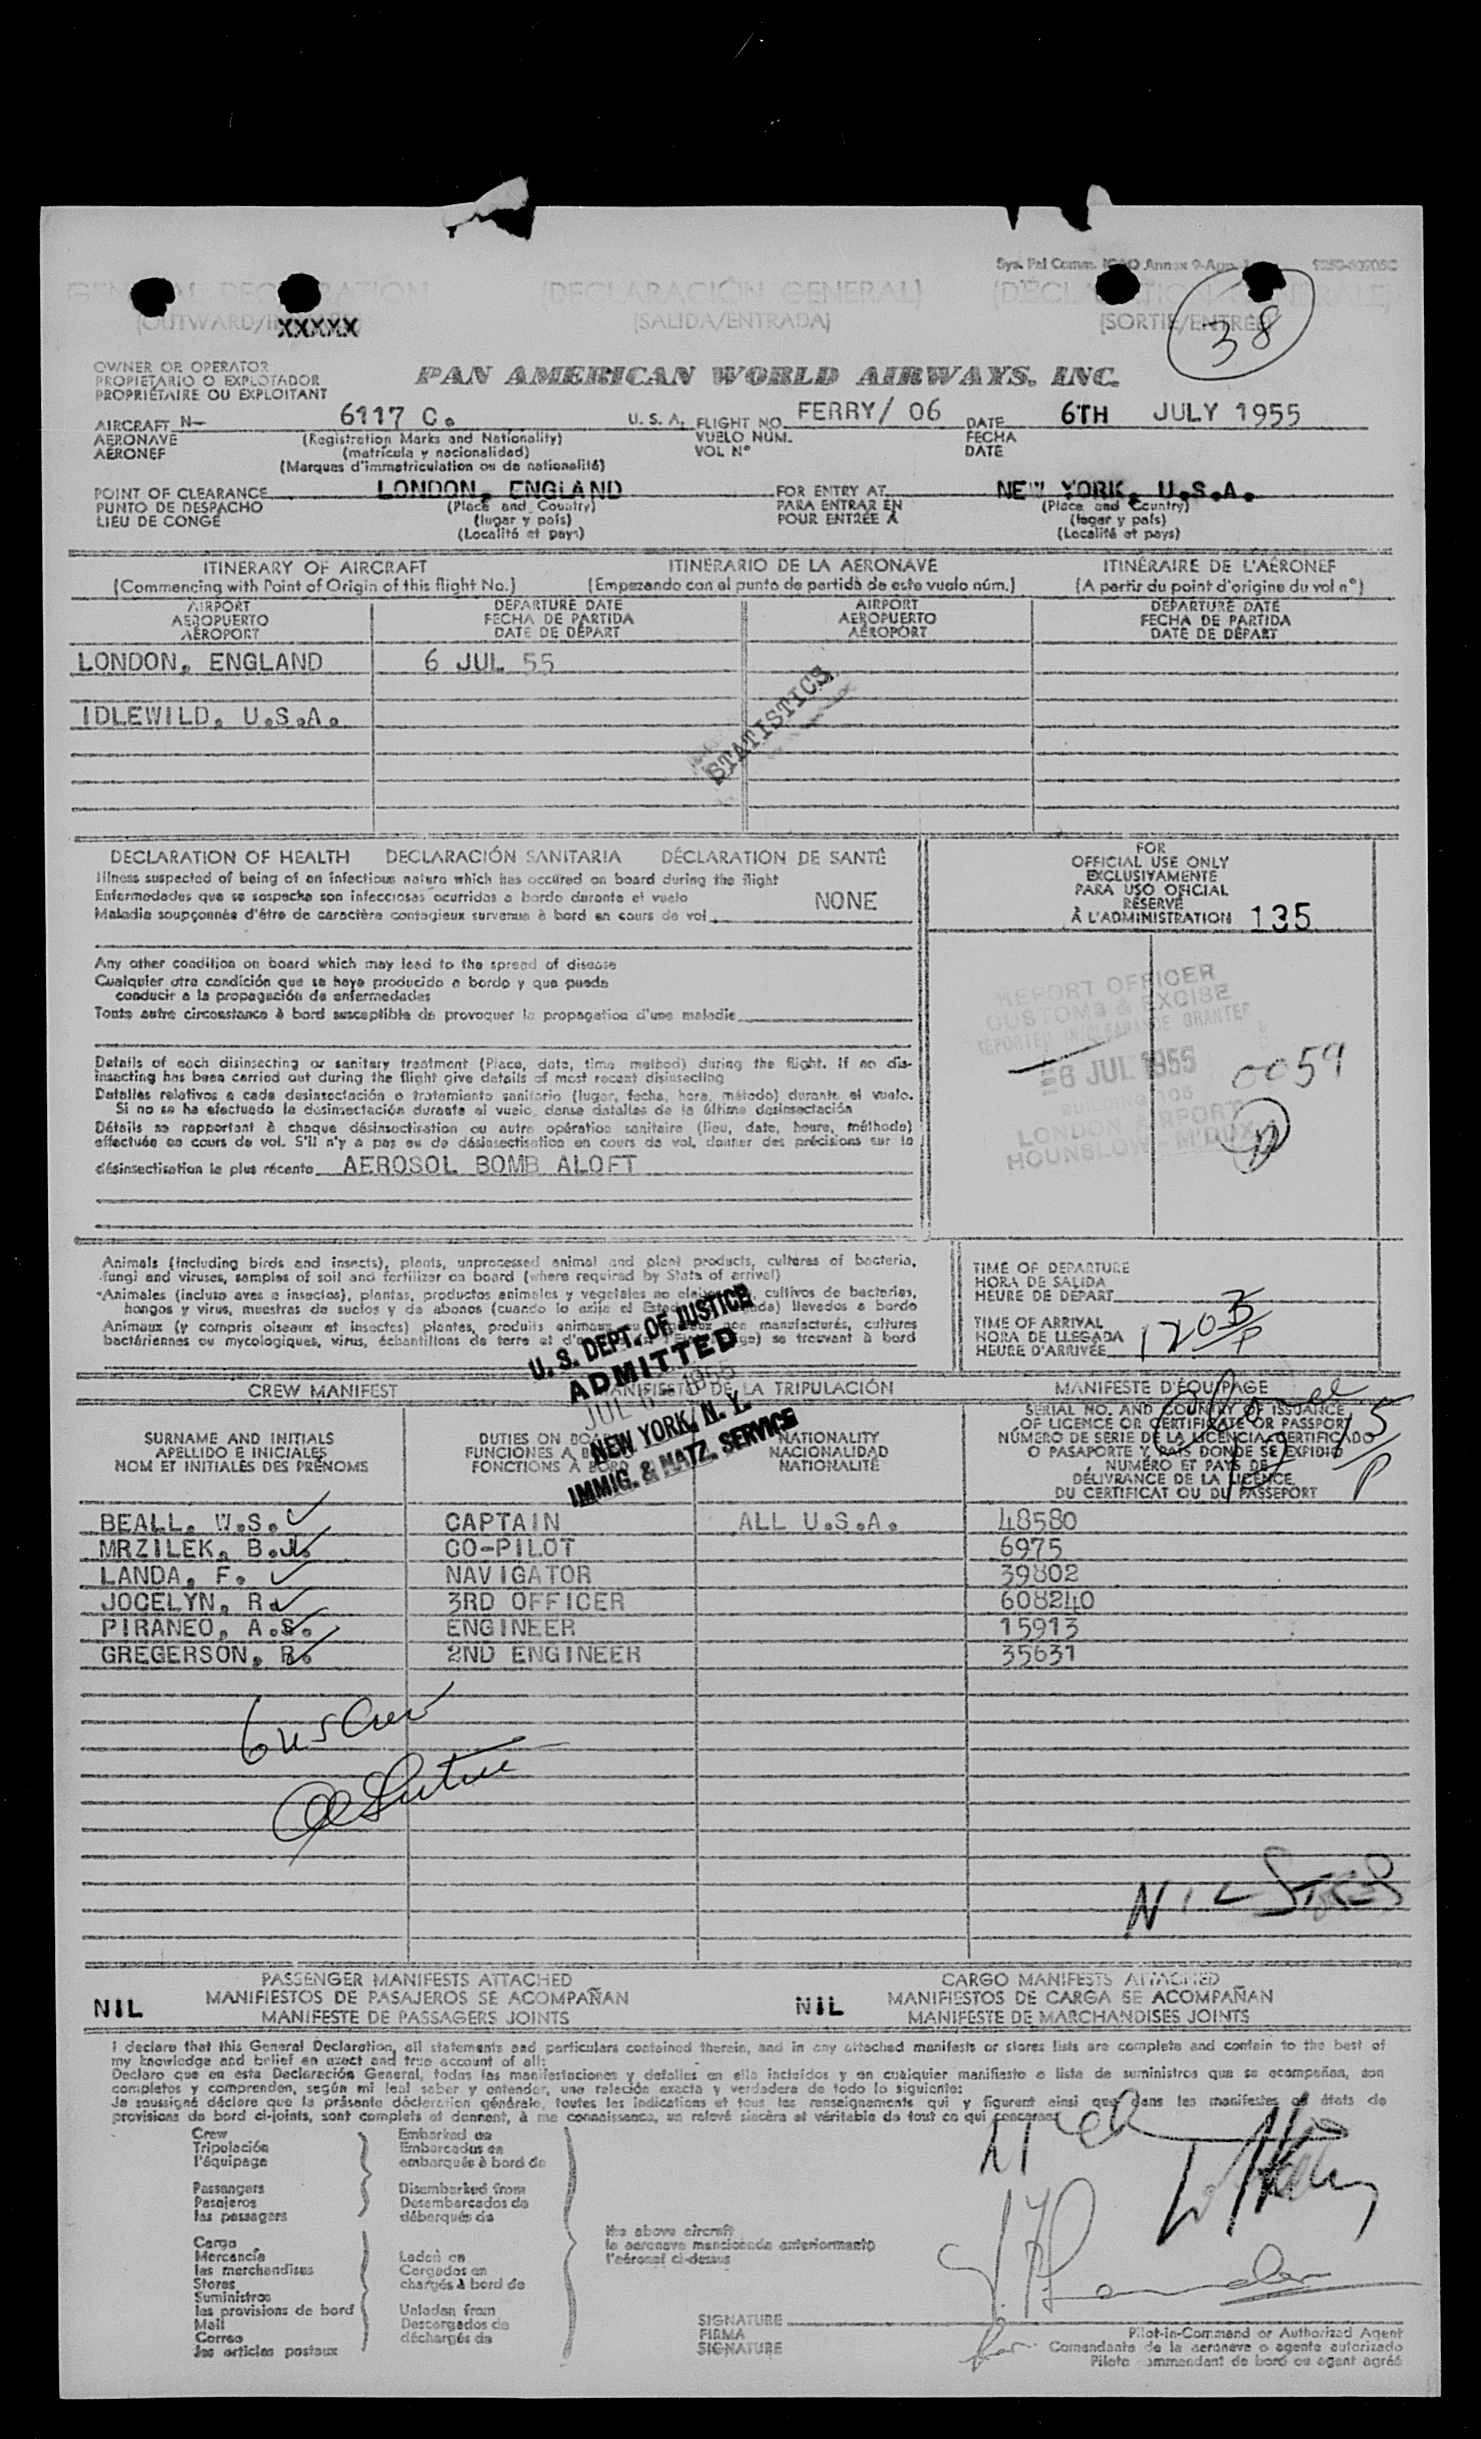 Sys. Fal Comm. ICAO Annex 9-App. 1
GENERAL DECLARATION (DECLARACIÓN GENERAL) (DÉCLARATION GÉNÉRALE)
(OUTWARD/ XXXXX (SALIDA/ENTRADA) (SORTIE/ENTRÉE)
38
OWNER OR OPERATOR
PROPIETARIO O EXPLOTADOR
PROPRIÉTAIRE OU EXPLOITANT
PAN AMERICAN WORLD AIRWAYS, INC.
AIRCRAFT N- 6117 C. U. S. A. FLIGHT NO. FERRY/ 06 DATE 6TH JULY 1955
AERONAVE (Registration Marks and Nationality) VUELO NÚM. FECHA
AÉRONEF (matrícula y nacionalidad) VOL N° DATE
(Marques d'immatriculation ou de nationalité)
POINT OF CLEARANCE LONDON, ENGLAND FOR ENTRY AT NEW YORK, U.S.A.
PUNTO DE DESPACHO (Place and Country) PARA ENTRAR EN (Place and Country)
LIEU DE CONGÉ (lugar y país) POUR ENTRÉE À (lugar y país)
(Localité et pays) (Localité et pays)
ITINERARY OF AIRCRAFT ITINERARIO DE LA AERONAVE ITINÉRAIRE DE L'AÉRONEF
(Commencing with Point of Origin of this flight No.) (Empezando con el punto de partida de este vuelo núm.) (A partir du point d'origine du vol n°)
AIRPORT DEPARTURE DATE AIRPORT DEPARTURE DATE
AEROPUERTO FECHA DE PARTIDA AEROPUERTO FECHA DE PARTIDA
AÉROPORT DATE DE DÉPART AÉROPORT DATE DE DÉPART
LONDON, ENGLAND 6 JUL 55
IDLEWILD, U.S.A.
STATISTICS
DECLARATION OF HEALTH DECLARACIÓN SANITARIA DÉCLARATION DE SANTÉ
Illness suspected of being of an infectious nature which has occured on board during the flight
Enfermedades que se sospecha son infecciosas ocurridas a bordo durante el vuelo
Maladie soupçonnée d'être de caractère contagieux survenue à bord en cours de vol NONE
Any other condition on board which may lead to the spread of disease
Cualquier otra condición que se haya producido a bordo y que pueda
conducir a la propagación de enfermedades
Toute autre circonstance à bord susceptible de provoquer la propagation d'une maladie
Details of each disinsecting or sanitary treatment (Place, date, time method) during the flight. If no dis-
insecting has been carried out during the flight give details of most recent disinsecting
Detalles relativos a cada desinsectación o tratamiento sanitario (lugar, fecha, hora, método) durante el vuelo.
Si no se ha efectuado la desinsectación durante el vuelo, dense detalles de la última desinsectación
Détails se rapportant à chaque désinsectisation ou autre opération sanitaire (lieu, date, heure, méthode)
effectuée en cours de vol. S'il n'y a pas eu de désinsectisation en cours de vol, donner des précisions sur la
désinsectisation la plus récente AEROSOL BOMB ALOFT
FOR
OFFICIAL USE ONLY
EXCLUSIVAMENTE
PARA USO OFICIAL
RÉSERVÉ
À L'ADMINISTRATION 135
REPORT OFFICER
CUSTOMS & EXCISE
REPORTED INCLEARANCE GRANTED
6 JUL 1955
BUILDING 106
LONDON AIRPORT
HOUNSLOW M'DDX
0059
Animals (including birds and insects), plants, unprocessed animal and plant products, cultures of bacteria,
fungi and viruses, samples of soil and fertilizer on board (where required by State of arrival)
Animales (incluso aves e insectos), plantas, productos animales y vegetales no elaborados, cultivos de bacterias,
hongos y virus, muestras de suelos y de abonos (cuando lo exija el Estado de llegada) llevados a bordo
Animaux (y compris oiseaux et insectes) plantes, produits animaux ou végétaux non manufacturés, cultures
bactériennes ou mycologiques, virus, échantillons de terre et d'engrais (si l'État l'exige) se trouvant à bord
TIME OF DEPARTURE
HORA DE SALIDA
HEURE DE DÉPART
TIME OF ARRIVAL
HORA DE LLEGADA
HEURE D'ARRIVÉE 1203 P
U. S. DEPT. OF JUSTICE
ADMITTED
JUL 6 1955
NEW YORK, N. Y.
IMMIG. & NATZ. SERVICE
CREW MANIFEST MANIFIESTO DE LA TRIPULACIÓN MANIFESTE D'ÉQUIPAGE
SURNAME AND INITIALS
APELLIDO E INICIALES
NOM ET INITIALES DES PRÉNOMS
DUTIES ON BOARD
FUNCIONES A BORDO
FONCTIONS À BORD
NATIONALITY
NACIONALIDAD
NATIONALITÉ
SERIAL NO. AND COUNTRY OF ISSUANCE
OF LICENCE OR CERTIFICATE OR PASSPORT
NÚMERO DE SERIE DE LA LICENCIA, CERTIFICADO
O PASAPORTE Y PAÍS DONDE SE EXPIDIÓ
NUMÉRO ET PAYS DE
DÉLIVRANCE DE LA LICENCE
DU CERTIFICAT OU DU PASSEPORT
BEALL, W.S. CAPTAIN ALL U.S.A. 48580
MRZILEK, B.J. CO-PILOT 6975
LANDA, F. NAVIGATOR 39802
JOCELYN, R. 3RD OFFICER 608240
PIRANEO, A.S. ENGINEER 15913
GREGERSON, R. 2ND ENGINEER 35631
6 us Crew
NIL STORES
PASSENGER MANIFESTS ATTACHED CARGO MANIFESTS ATTACHED
NIL MANIFIESTOS DE PASAJEROS SE ACOMPAÑAN NIL MANIFIESTOS DE CARGA SE ACOMPAÑAN
MANIFESTE DE PASSAGERS JOINTS MANIFESTE DE MARCHANDISES JOINTS
I declare that this General Declaration, all statements and particulars contained therein, and in any attached manifests or stores lists are complete and contain to the best of
my knowledge and belief an exact and true account of all:
Declaro que en esta Declaración General, todas las manifestaciones y detalles en ella incluídos y en cualquier manifiesto o lista de suministros que se acompañan, son
completos y comprenden, según mi leal saber y entender, una relación exacta y verdadera de todo lo siguiente:
Je soussigné déclare que la présente déclaration générale, toutes les indications et tous les renseignements qui y figurent ainsi que dans les manifestes et états de
provisions de bord ci-joints, sont complets et donnent, à ma connaissance, un relevé sincère et véritable de tout ce qui concerne
Crew Embarked on
Tripulación Embarcados en
l'équipage embarqués à bord de
Passengers Disembarked from
Pasajeros Desembarcados de
les passagers débarqués de
the above aircraft
la aeronave mencionada anteriormente
l'aéronef ci-dessus
Cargo
Mercancía Laden on
les marchandises Cargados en
Stores chargés à bord de
Suministros
les provisions de bord Unladen from
Mail Descargados de
Correo déchargés de
les articles postaux
SIGNATURE
FIRMA
SIGNATURE
for
Pilot-in-Command or Authorized Agent
Comandante de la aeronave o agente autorizado
Pilote commandant de bord ou agent agréé